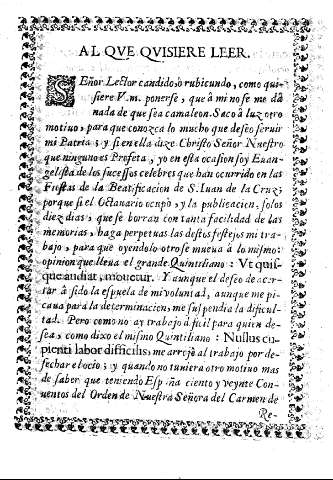 AL QVE QVISIERE LEER.
SEñor Lector candido, ò rubicundo, como qui-
siere V.m. ponerse, que à mi no se me dà
nada de que sea camaleon. Saco à luz otro
motiuo, para que conozca lo mucho que deseo seruir
mi Patria; y si en ella dize Christo Señor Nuestro
que ninguno es Profeta, yo en esta ocasion soy Euan-
gelista de los sucessos celebres que han ocurrido en las
Fiestas de la Beatificacion de S. Iuan de la Cruz;
porque si el Octauario ocupò, y la publicacion, solos
diez dias, que se borran con tanta facilidad de las
memorias, haga perpetuas las destos festejos mi tra-
bajo, para que oyendolo otro se mueua à lo mismo:
opinion que lleua el grande Quintiliano: Vt quis-
que audiat, mouetur. Y aunque el deseo de acer-
tar à sido la espuela de mi voluntad, aunque me pi-
caua para la determinacion, me suspendia la dificul-
tad. Pero como no ay trabajo dificil para quien de-
sea, como dixo el mismo Quintiliano: Nullus cu-
pienti labor difficilis; me arrojè al trabajo por de-
sechar el ocio; y quando no tuniera otro motiuo mas
de saber que teniendo España ciento y veynte Con-
uentos del Orden de Nuestra Señora del Carmen de
Re-